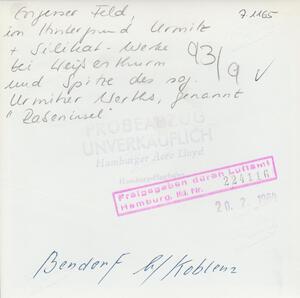 Engerser Feld,
im Hintergrund Urmitz
+ Silikat-Werke
bei Weißenthurm
und Spitze des sog.
Urmitzer Werths, genannt
"Rabeninsel"
7.1165
93/9 ✓
PROBEABZUG
UNVERKÄUFLICH
Hamburger Aero Lloyd
Hamburg-Flughafen
Freigegeben durch Luftamt
Hamburg, Hd. Nr. 224116
20. 2. 1964
Bendorf b/Koblenz